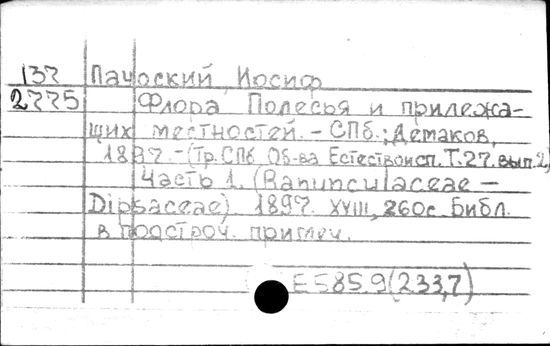 137 Пачоский, Иосиф
2775 Флора Полесья и прилежа-
щих местностей. - СПб.; Демаков,
1897. - (Тр. СПб. Об-ва Естествоисп. Т. 27. вып. 2)
Часть 1. (Ranunculaceae -
Dipsaceae) 1897. XVIII, 260с. Библ.
в подстроч. примеч.
Е 585.9(233,7)